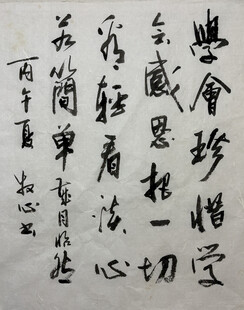 學會珍惜学
会感恩把一切
看輕看淡心
若簡单歲月怡然
丙午夏 牧心书